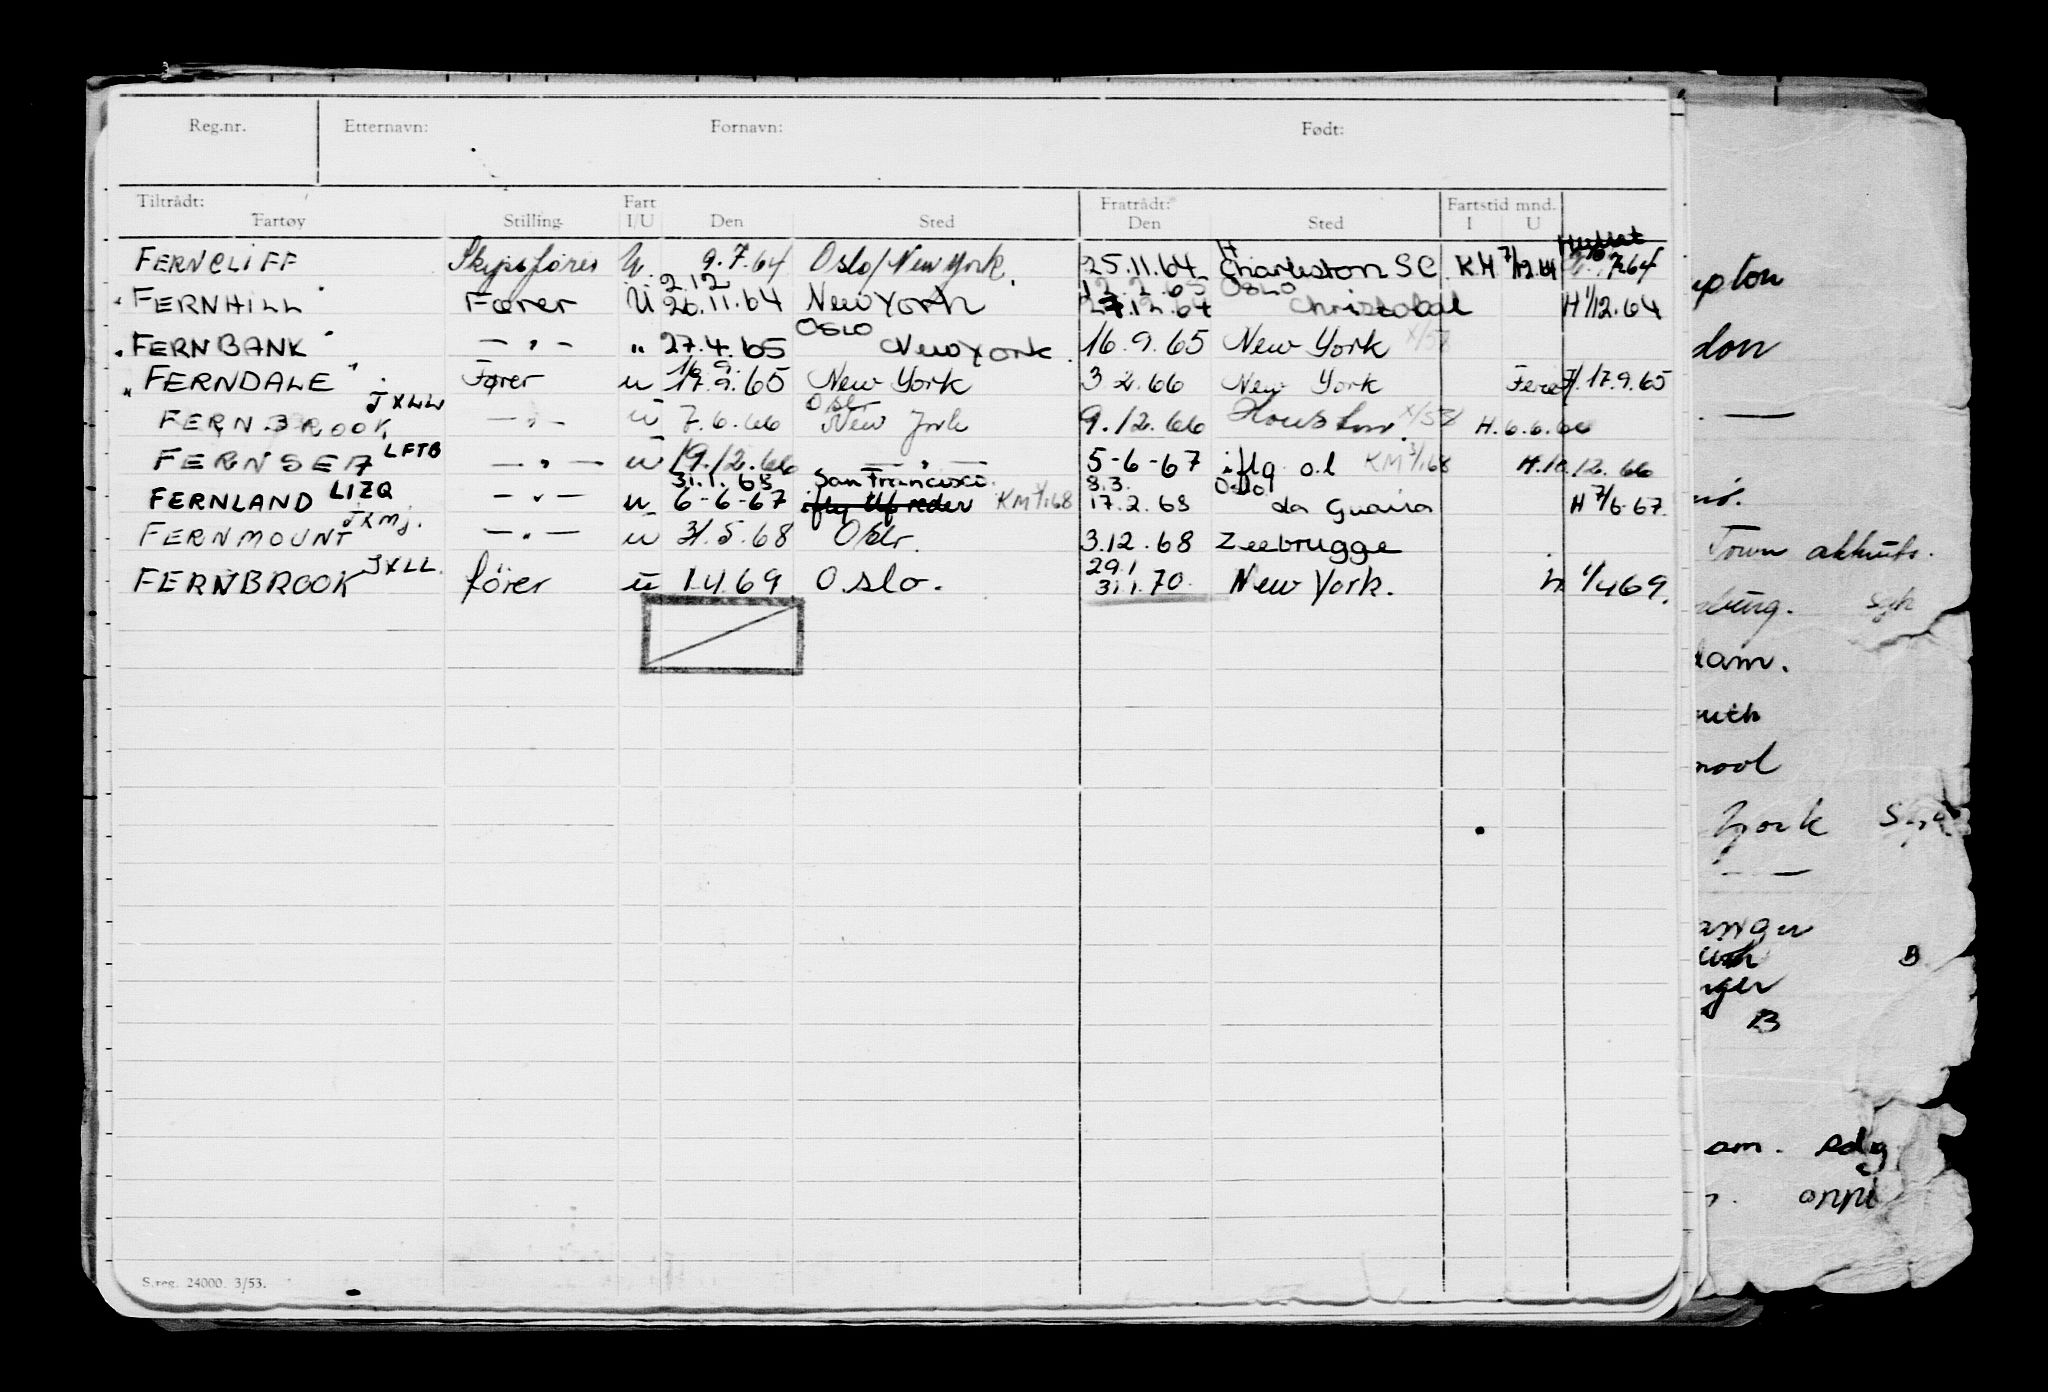 Reg.nr. Etternavn: Fornavn: Født:
Tiltrådt: Fart Fratrådt: Fartstid mnd.
Fartøy Stilling I/U Den Sted Den Sted I U
FERNCLIFF Skipsfører U. 9.7.64 Oslo/New York. 25.11.64 Charleston SC KM 7/12.64 7.64
2.12 12.2.65 OSLO
"FERNHILL" Fører Ü 20.11.64 New York 27.12.64 Christobal H 1/12.64
OSLO
"FERNBANK" — " — " 27.4.65 New York. 16.9.65 New York X/58
16.9.
"FERNDALE" Fører u 17.9.65 New York 3 2.66 New York 17.9.65
JXLL Oslo
FERNBROOK — " — ü 7.6.66 New York 9.12.66 Houston. X/58 H.6.6.66
FERNSEA LFTB — " — ü 19.12.66 — " — 5-6-67 iflg o.l KM 1/1.68 H.10.12.66
31.1.68 San Francisco. 8.3. Oslo
FERNLAND LIZQ — " — u 6-6-67 KM 1/1.68 17.2.68 da Guaira H 7/6-67.
FERNMOUNT JXMJ. — " — ü 31.5.68 Oslo. 3.12.68 Zeebrugge
29.1
FERNBROOK JXLL. fører ü 1.4.69 Oslo. 31.1.70. New York. h 1/4 69.
S.reg. 24000. 3/53.
don
Town
B
B
am.